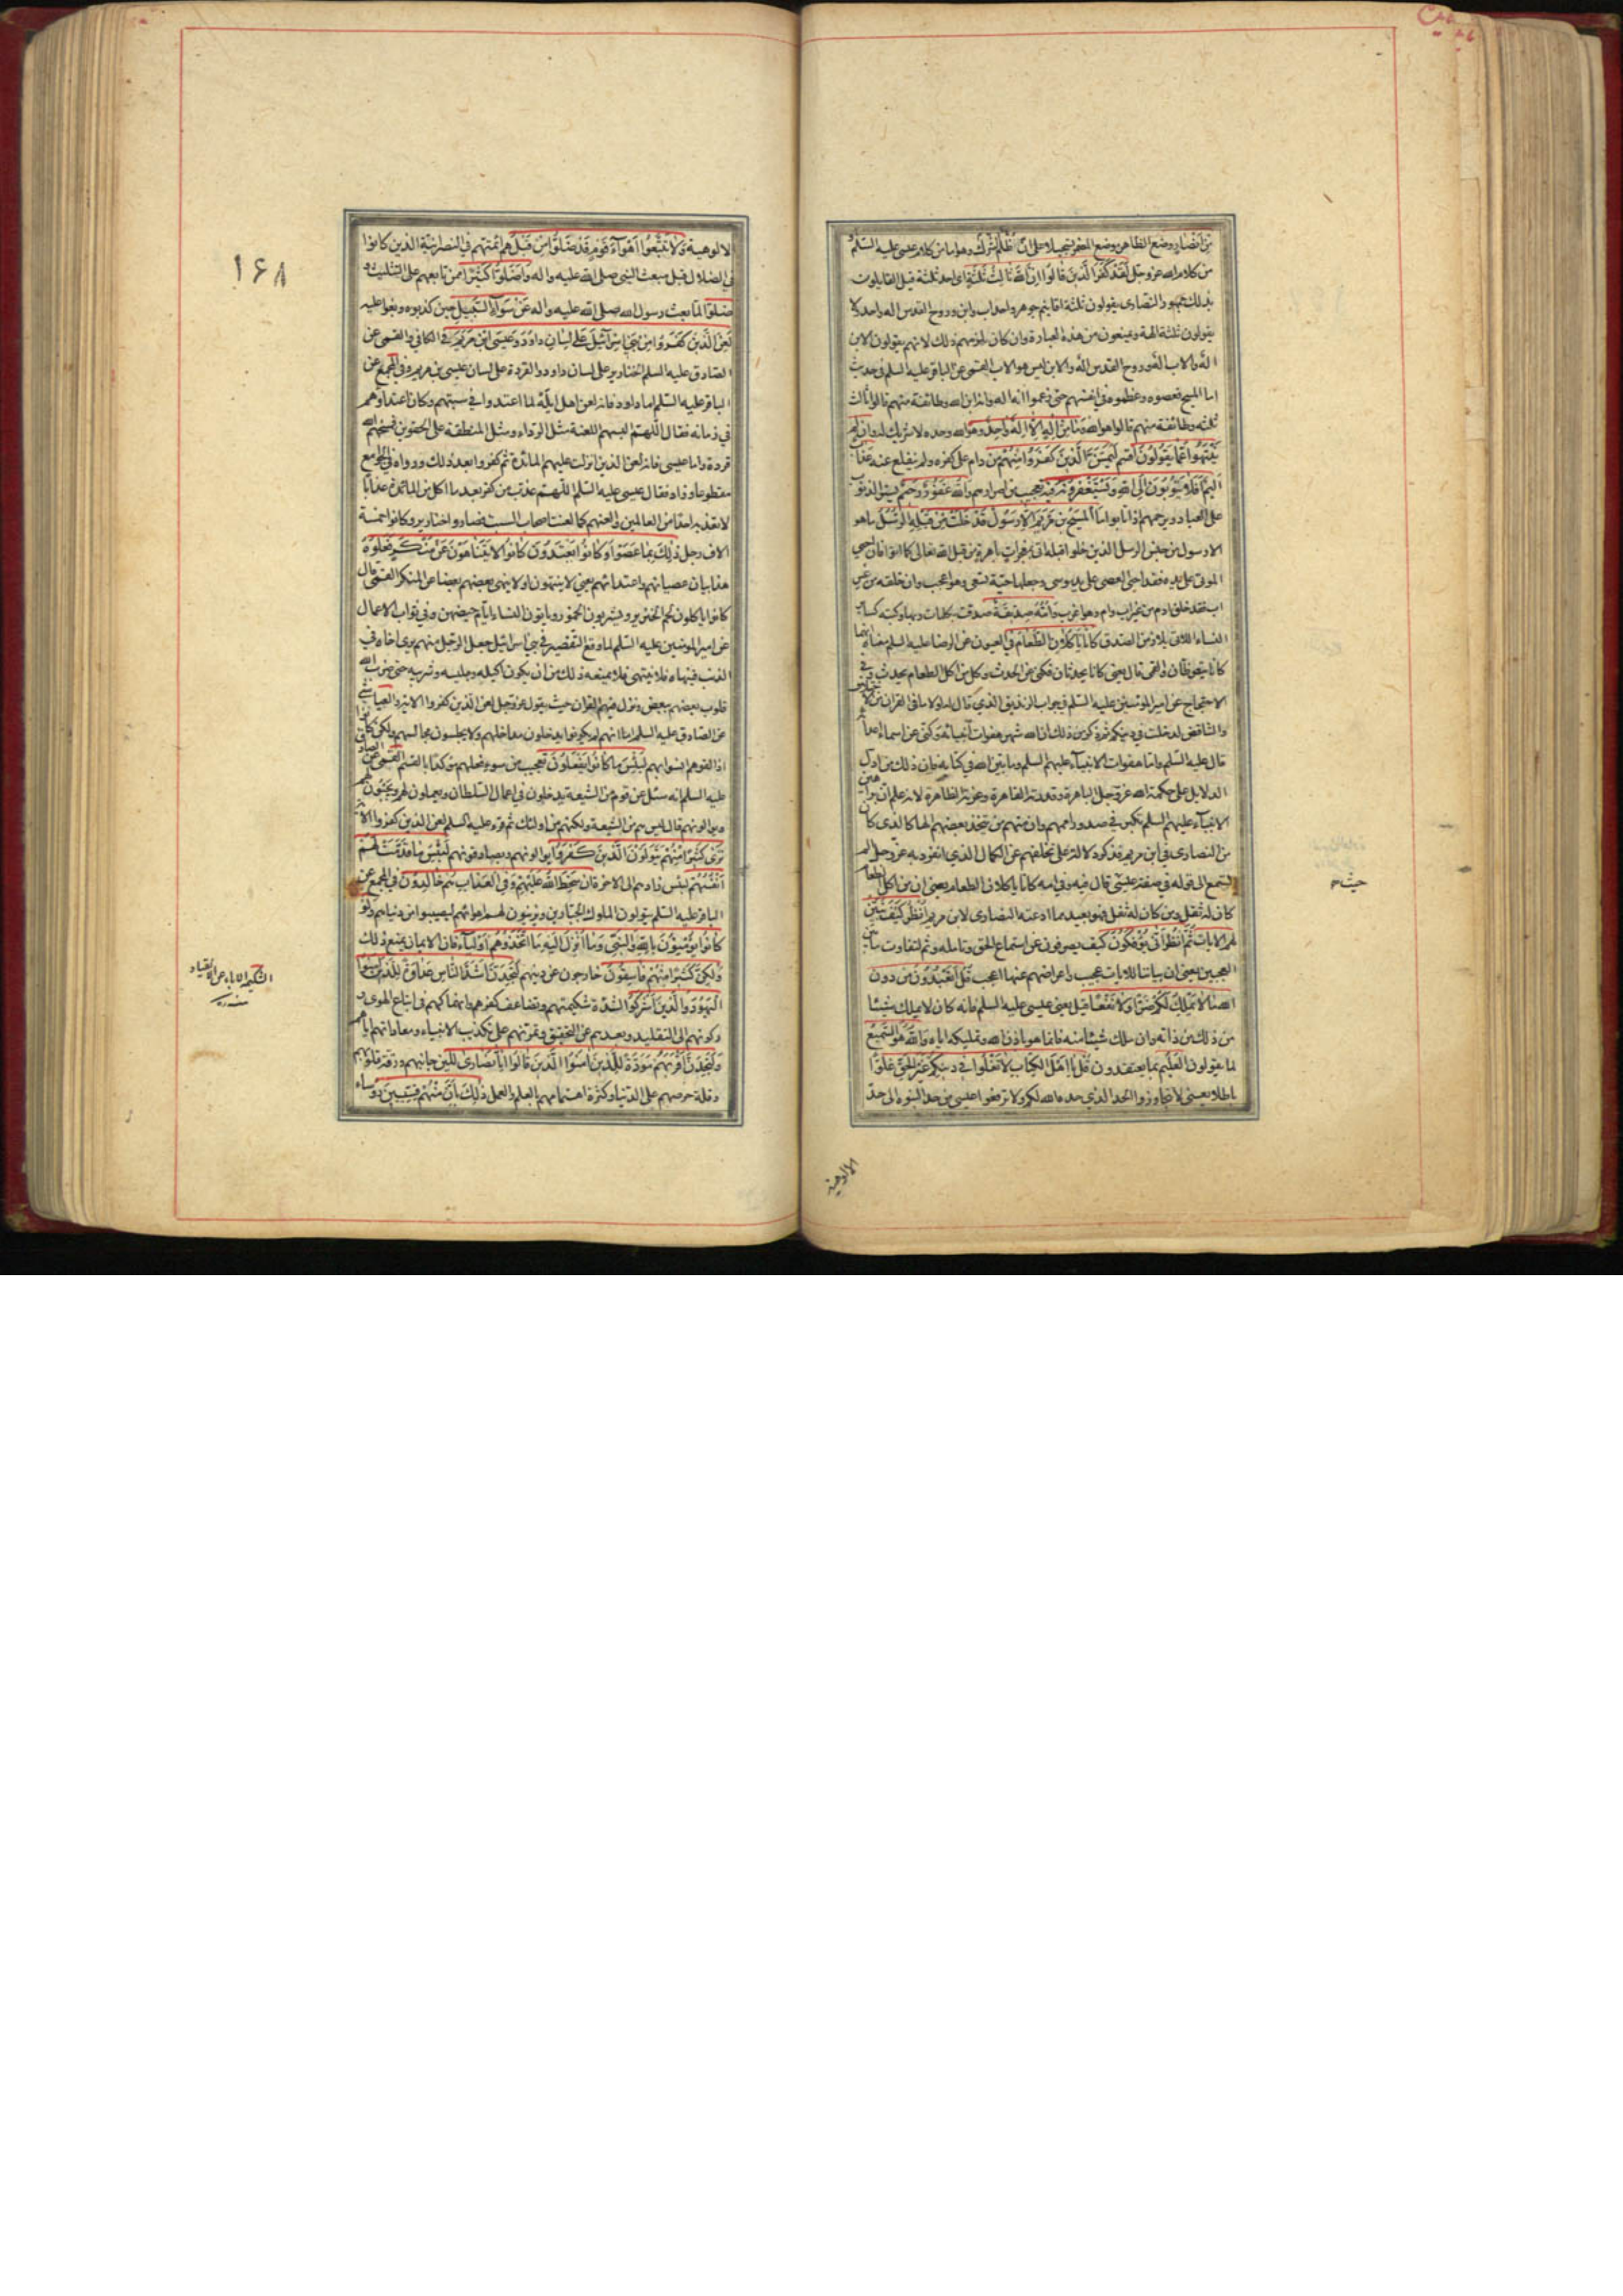 من انصار وضع الظاهر موضع المضمر تسجيلا على ان الظلم شرك وهو اما من كلام عيسى عليه السلم او
من كلام الله عز وجل لقد كفر الذين قالوا ان الله ثالث ثلثة اى احد ثلثة قيل القايلون
بذلك جمهور النصارى يقولون ثلثة اقانيم جوهر واحد اب وابن وروح القدس اله واحد ولا
يقولون ثلثة الهة ويمنعون من هذه العبارة وان كان يلزمهم ذلك لانهم يقولون الابن
اله والاب اله وروح القدس اله والابن ليس هو الاب القمى عن الباقر عليه السلم فى حديث
اما المسيح فعصوه وعظموه فى انفسهم حتى زعموا انه اله وانه ابن الله وطائفة منهم قالوا ثالث
ثلثه وطائفة منهم قالوا هو الله وما من اله الا اله واحد وهو الله وحده لا شريك له وان لم
ينتهوا عما يقولون اقسم ليمسن الذين كفروا منهم من دام على كفره ولم ينقلع عنه عذاب
اليم افلا يتوبون الى الله ويستغفرونه فيه تعجيب من اصرارهم والله غفور رحيم يستر الذنوب
على العباد ويرحمهم اذا تابوا ما المسيح بن مريم الا رسول قد خلت من قبله الرسل ما هو
الا رسول من جنس الرسل الذين خلوا قبله اتى بمعجزات باهرة من قبل الله تعالى كما اتوا فان احيى
الموتى على يده فقد احيى العصى على يد موسى وجعلها حية تسعى وهو اعجب وان خلقه من غير
اب فقد خلق ادم من غير اب وام وهو اغرب وامه صديقة صدقت بكلمات ربها وكتبه كساير
النساء اللاتى يلازمن الصدق كانا ياكلان الطعام فى العيون عن الرضا عليه السلم معناه انهما
كانا يتغوطان والقمى قال يعنى كانا يحدثان فكنى عن الحدث وكل من اكل الطعام يحدث وفى
الاحتجاج عن امير المؤمنين عليه السلم فى جواب الزنديق الذى قال له لولا ما فى القران من الاختلاف
والتناقض لدخلت فى دينكم ثم ذكر من ذلك ان الله شهر هفوات انبيائه وكنى عن اسماء اعدائه
قال عليه السلم واما هفوات الانبياء عليهم السلم وما بينه الله فى كتابه فان ذلك من ادل
الدلايل على حكمة الله عز وجل الباهرة وقدرته القاهرة وعزته الظاهرة لانه علم ان براهين
الانبياء عليهم السلم تكبر فى صدور اممهم وان منهم من يتخذ بعضهم الها كالذى كان
من النصارى فى ابن مريم فذكرها دلالة على تخلفهم عن الكمال الذى انفرد به عز وجل الم
تستمع الى قوله فى صفة عيسى قال فيه وفى امه كانا ياكلان الطعام يعنى ان من اكل الطعام
كان له ثفل ومن كان له ثفل فهو بعيد مما ادعته النصارى لابن مريم انظر كيف نبين
لهم الايات ثم انظر انى يؤفكون كيف يصرفون عن استماع الحق وتامله وثم لتفاوت ما بين
العجبين يعنى ان بياننا للايات عجيب واعراضهم عنها اعجب قل اتعبدون من دون
الله ما لا يملك لكم ضرا ولا نفعا قيل يعنى عيسى عليه السلم فانه كان لا يملك شيئا
من ذلك من ذاته وان ملك شيئا منه فانما هو باذن الله وتمليكه اياه والله هو السميع
لما يقولون العليم بما يعتقدون قل يا اهل الكتاب لا تغلوا فى دينكم غير الحق غلوا
باطلا يعنى لا تتجاوزوا الحد الذى حده الله لكم ولا ترفعوا عيسى من حد النبوة الى حد
الالوهية
الالوهية ولا تتبعوا اهواء قوم قد ضلوا من قبل هم ائمتهم فى النصرانية الذين كانوا
فى الضلال قبل مبعث النبى صلى الله عليه واله واضلوا كثيرا ممن تابعهم على التثليث و
ضلوا لما بعث رسول الله صلى الله عليه واله عن سواء السبيل حين كذبوه وبغوا عليه
لعن الذين كفروا من بنى اسرائيل على لسان داود وعيسى ابن مريم فى الكافى والقمى عن
الصادق عليه السلم الخنازير على لسان داود والقردة على لسان عيسى بن مريم وفى المجمع عن
الباقر عليه السلم اما داود فانه لعن اهل ايلة لما اعتدوا فى سبتهم وكان اعتداؤهم
فى زمانه فقال اللهم البسهم اللعنة مثل الرداء ومثل المنطقة على الحقوين فمسخهم الله
قردة واما عيسى فانه لعن الذين انزلت عليهم المائدة ثم كفروا بعد ذلك ورواه فى الجوامع
مقطوعا وزاد فقال عيسى عليه السلم اللهم عذب من كفر بعد ما اكل من المائدة عذابا
لا تعذبه احدا من العالمين والعنهم كما لعنت اصحاب السبت فصاروا خنازير وكانوا خمسة
الاف رجل ذلك بما عصوا وكانوا يعتدون كانوا لا يتناهون عن منكر فعلوه
هذا بيان عصيانهم واعتدائهم يعنى لا ينتهون او لا ينهى بعضهم بعضا عن المنكر القمى قال
كانوا ياكلون لحم الخنزير ويشربون الخمور وياتون النساء ايام حيضهن وفى ثواب الاعمال
عن امير المؤمنين عليه السلم لما وقع التقصير فى بنى اسرائيل جعل الرجل منهم يرى اخاه فى
الذنب فينهاه فلا ينتهى فلا يمنعه ذلك من ان يكون اكيله وجليسه وشريبه حتى ضرب الله
قلوب بعضهم ببعض ونزل فيهم القران حيث يقول عز وجل لعن الذين كفروا الاية والعياشى
عن الصادق عليه السلم اما انهم لم يكونوا يدخلون مداخلهم ولا يجلسون مجالسهم ولكن كانوا
اذا لقوهم انسوا بهم لبئس ما كانوا يفعلون تعجيب من سوء فعلهم مؤكدا بالقسم القمى عن الصادق
عليه السلم انه سئل عن قوم من الشيعة يدخلون فى اعمال السلطان ويعملون لهم ويحبونهم
ويوالونهم قال ليس هم من الشيعة ولكنهم من اولئك ثم قرء عليه السلم لعن الذين كفروا الاية
ترى كثيرا منهم يتولون الذين كفروا يوالونهم ويصادقونهم لبئس ما قدمت لهم
انفسهم لبئس زادهم الى الاخرة ان سخط الله عليهم وفى العذاب هم خالدون فى المجمع عن
الباقر عليه السلم يتولون الملوك الجبارين ويزينون لهم اهوائهم ليصيبوا من دنياهم ولو
كانوا يؤمنون بالله والنبى وما انزل اليه ما اتخذوهم اولياء فان الايمان يمنع ذلك
ولكن كثيرا منهم فاسقون خارجون عن دينهم لتجدن اشد الناس عداوة للذين امنوا
اليهود والذين اشركوا لشدة شكيمتهم وتضاعف كفرهم وانهماكهم فى اتباع الهوى و
ركونهم الى التقليد وبعدهم عن التحقيق وتمرنهم على تكذيب الانبياء ومعاداتهم اياهم
ولتجدن اقربهم مودة للذين امنوا الذين قالوا انا نصارى للين جانبهم ورقة قلوبهم
وقلة حرصهم على الدنيا وكثرة اهتمامهم بالعلم والعمل ذلك بان منهم قسيسين رؤساء
١۶٨